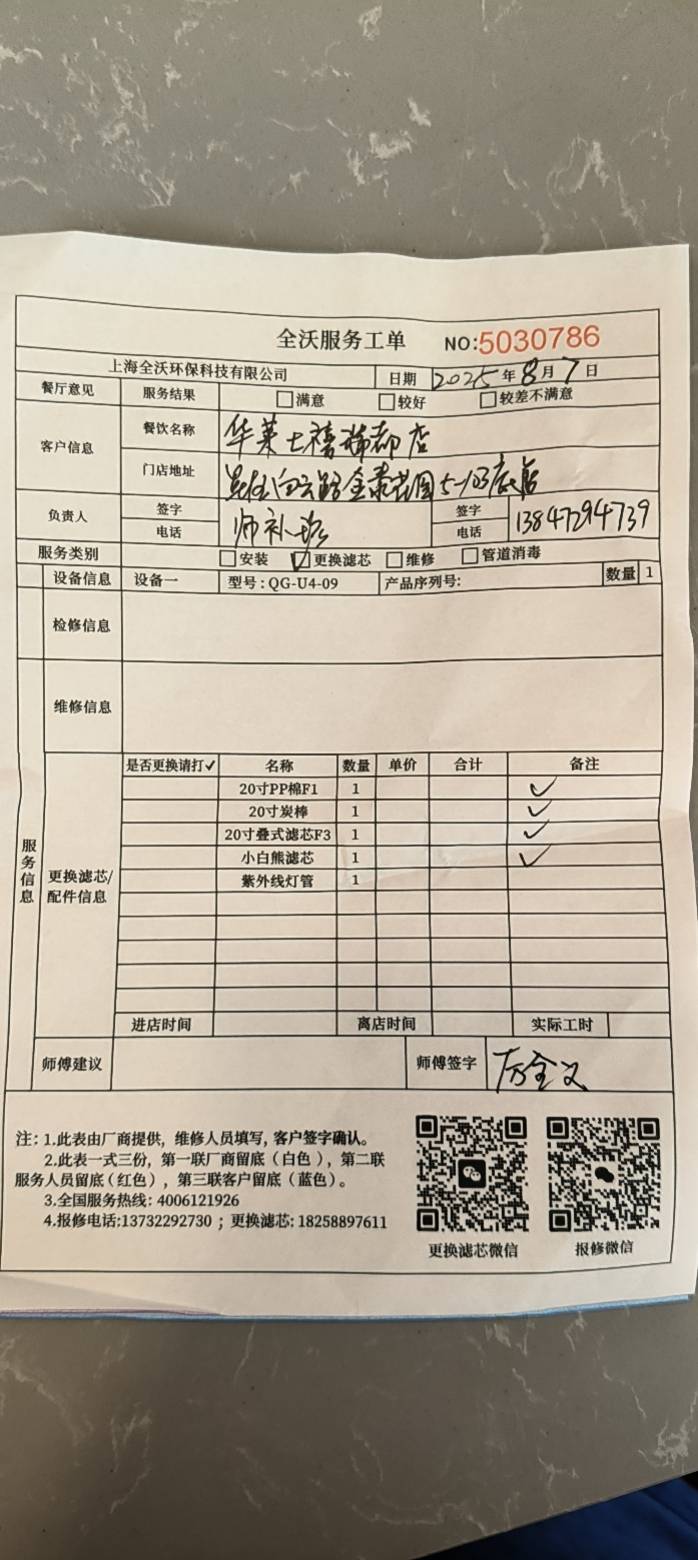 全沃服务工单 NO:5030786
上海全沃环保科技有限公司 日期 2025年8月7日
餐厅意见 服务结果 满意 较好 较差不满意
客户信息 餐饮名称 华莱士禧瑞都店
门店地址 白云路金泰花园5-103底店
负责人 签字 签字
电话 师补 电话 13847294739
服务类别 安装 ✓更换滤芯 维修 管道消毒
设备信息 设备一 型号:QG-U4-09 产品序列号: 数量 1
检修信息
维修信息
服务信息
更换滤芯/配件信息
是否更换请打✓ 名称 数量 单价 合计 备注
20寸PP棉F1 1 ✓
20寸炭棒 1 ✓
20寸叠式滤芯F3 1 ✓
小白熊滤芯 1 ✓
紫外线灯管 1
进店时间 离店时间 实际工时
师傅建议 师傅签字 全义
注: 1.此表由厂商提供, 维修人员填写, 客户签字确认。
2.此表一式三份, 第一联厂商留底（白色）, 第二联
服务人员留底（红色）, 第三联客户留底（蓝色）。
3.全国服务热线: 4006121926
4.报修电话:13732292730 ; 更换滤芯: 18258897611
更换滤芯微信 报修微信